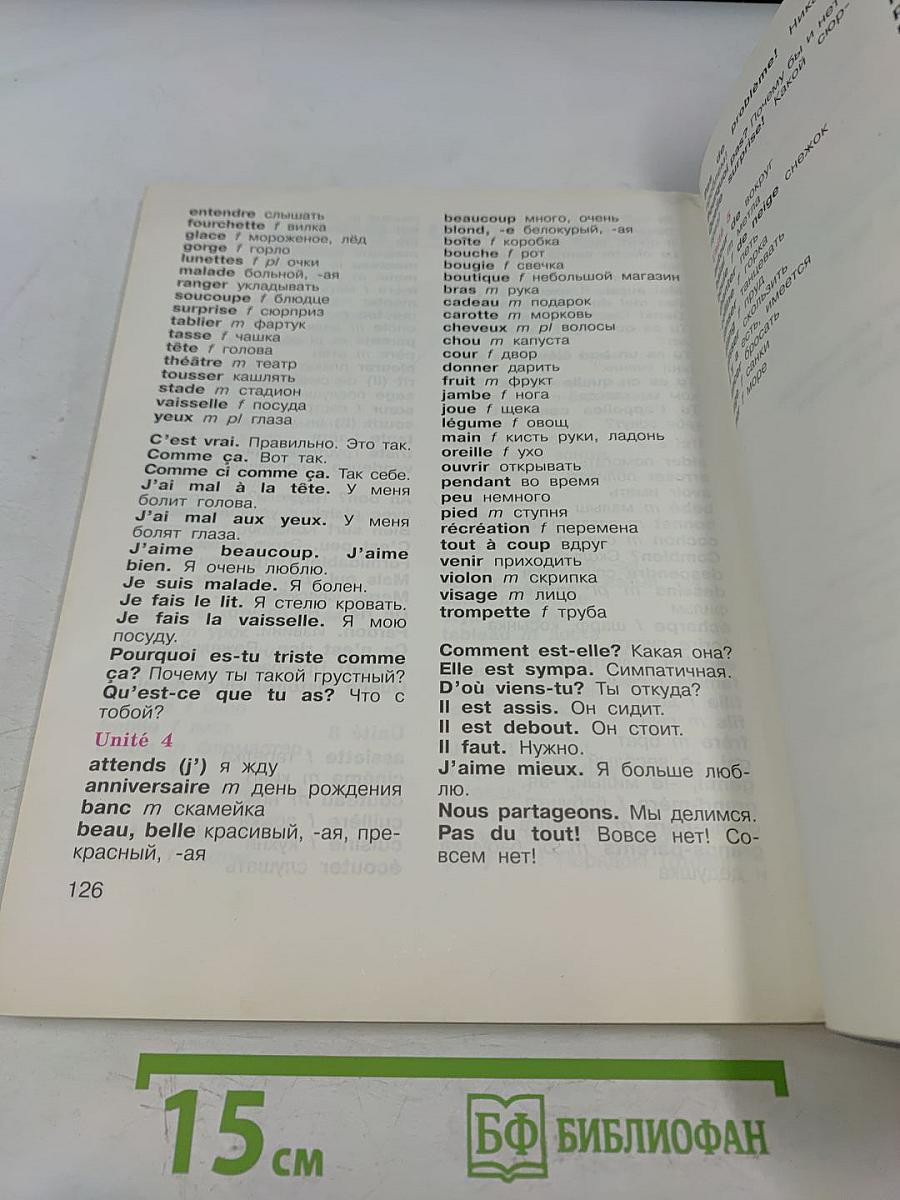 entendre слышать
fourchette f вилка
glace f мороженое, лёд
gorge f горло
lunettes f pl очки
malade больной, -ая
ranger укладывать
soucoupe f блюдце
surprise f сюрприз
tablier m фартук
tasse f чашка
tête f голова
théâtre m театр
tousser кашлять
stade m стадион
vaisselle f посуда
yeux m pl глаза
C'est vrai. Правильно. Это так.
Comme ça. Вот так.
Comme ci comme ça. Так себе.
J'ai mal à la tête. У меня
болит голова.
J'ai mal aux yeux. У меня
болят глаза.
J'aime beaucoup. J'aime
bien. Я очень люблю.
Je suis malade. Я болен.
Je fais le lit. Я стелю кровать.
Je fais la vaisselle. Я мою
посуду.
Pourquoi es-tu triste comme
ça? Почему ты такой грустный?
Qu'est-ce que tu as? Что с
тобой?
Unité 4
attends (j') я жду
anniversaire m день рождения
banc m скамейка
beau, belle красивый, -ая, пре-
красный, -ая
126
beaucoup много, очень
blond, -e белокурый, -ая
boîte f коробка
bouche f рот
bougie f свечка
boutique f небольшой магазин
bras m рука
cadeau m подарок
carotte m морковь
cheveux m pl волосы
chou m капуста
cour f двор
donner дарить
fruit m фрукт
jambe f нога
joue f щека
légume f овощ
main f кисть руки, ладонь
oreille f ухо
ouvrir открывать
pendant во время
peu немного
pied m ступня
récréation f перемена
tout à coup вдруг
venir приходить
violon m скрипка
visage m лицо
trompette f труба
Comment est-elle? Какая она?
Elle est sympa. Симпатичная.
D'où viens-tu? Ты откуда?
Il est assis. Он сидит.
Il est debout. Он стоит.
Il faut. Нужно.
J'aime mieux. Я больше люб-
лю.
Nous partageons. Мы делимся.
Pas du tout! Вовсе нет! Со-
всем нет!
problème!
pas? Почему бы и нет
surprise! Какой сюр-
5
вокруг
метла
de neige снежок
петь
горка
танцевать
пруд
скользить
есть, имеется
бросать
санки
море
15 см
БФ БИБЛИОФАН